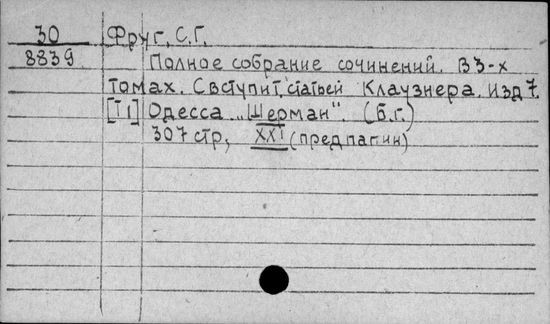 30 Фруг, С.Г.
8839 Полное собрание сочинений. В 3-х
томах. С вступит. статьей Клаузнера. Изд 7.
[Т I] Одесса "Шерман". (б.г.)
307 стр, XXI (пред пагин)